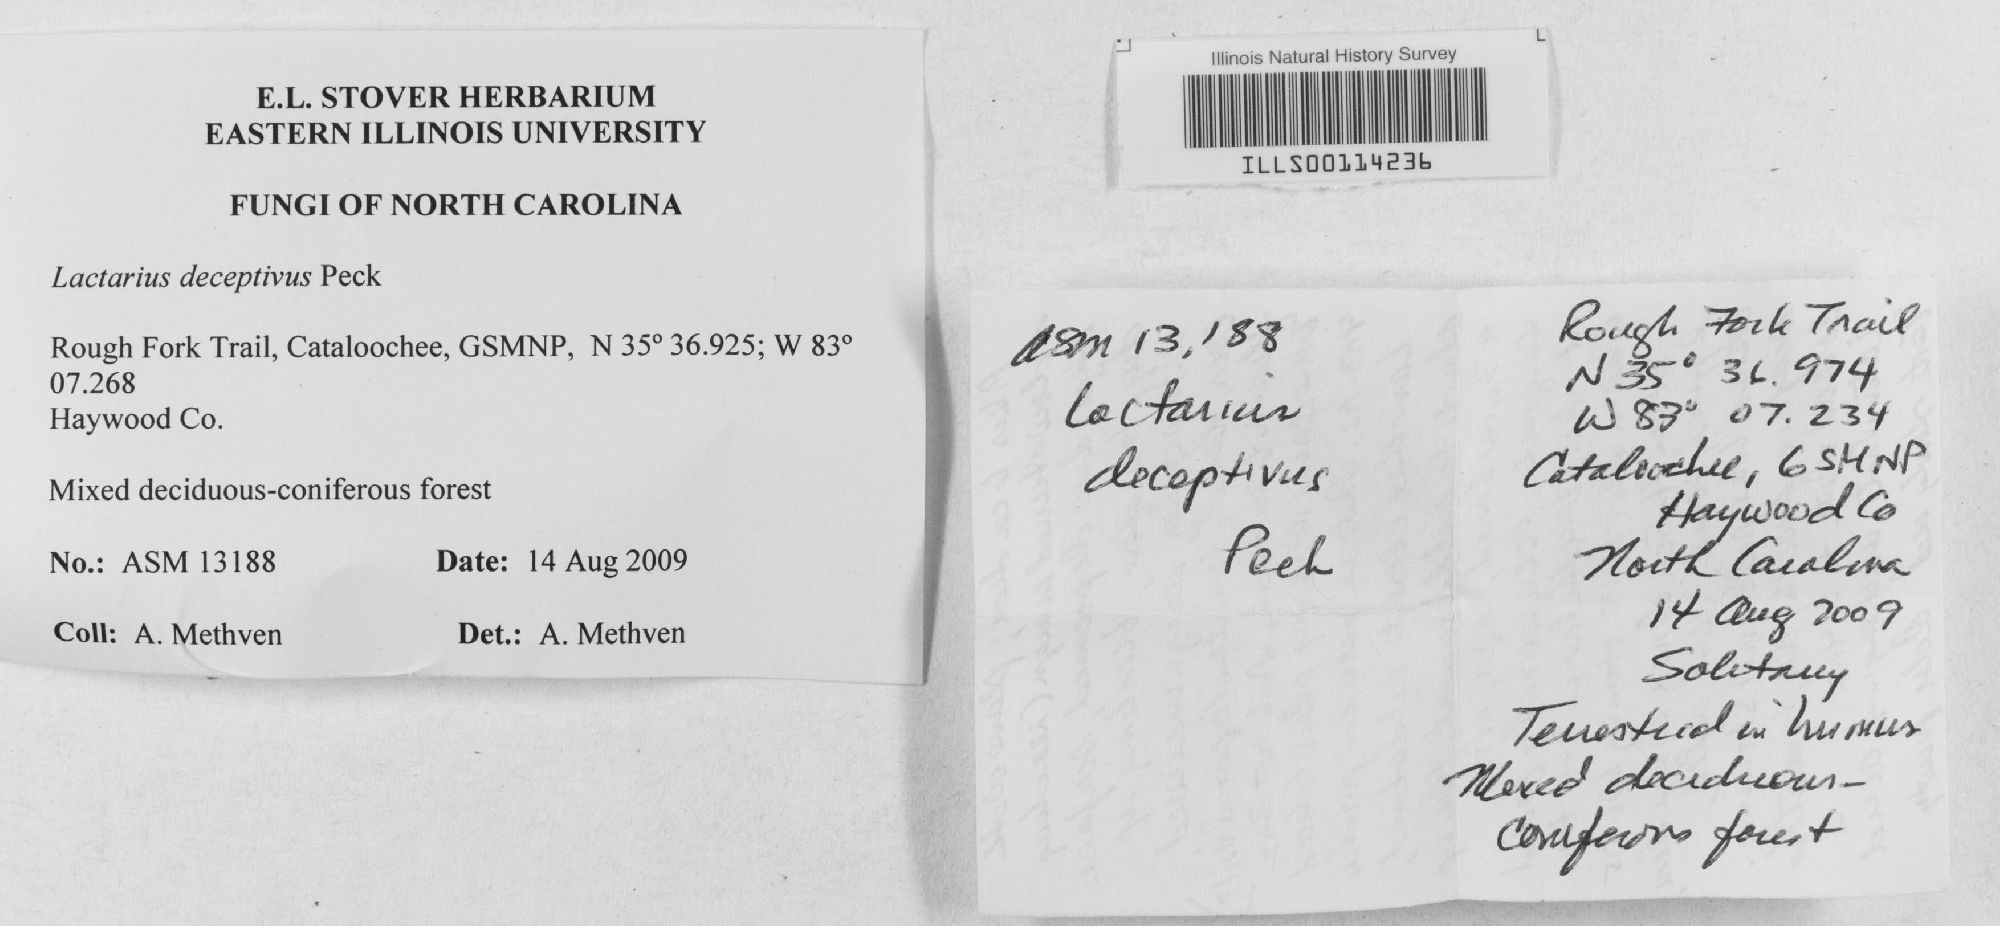 E.L. STOVER HERBARIUM
EASTERN ILLINOIS UNIVERSITY
FUNGI OF NORTH CAROLINA
Lactarius deceptivus Peck
Rough Fork Trail, Cataloochee, GSMNP, N 35° 36.925; W 83°
07.268
Haywood Co.
Mixed deciduous-coniferous forest
No.: ASM 13188 Date: 14 Aug 2009
Coll: A. Methven Det.: A. Methven
Illinois Natural History Survey
ILLS00114236
ASM 13,188
Lactarius
deceptivus
Peck
Rough Fork Trail
N 35° 36.974
W 83° 07.234
Cataloochee, GSMNP
Haywood Co
North Carolina
14 Aug 2009
Solitary
Terrestrial in humus
Mixed deciduous-
coniferous forest